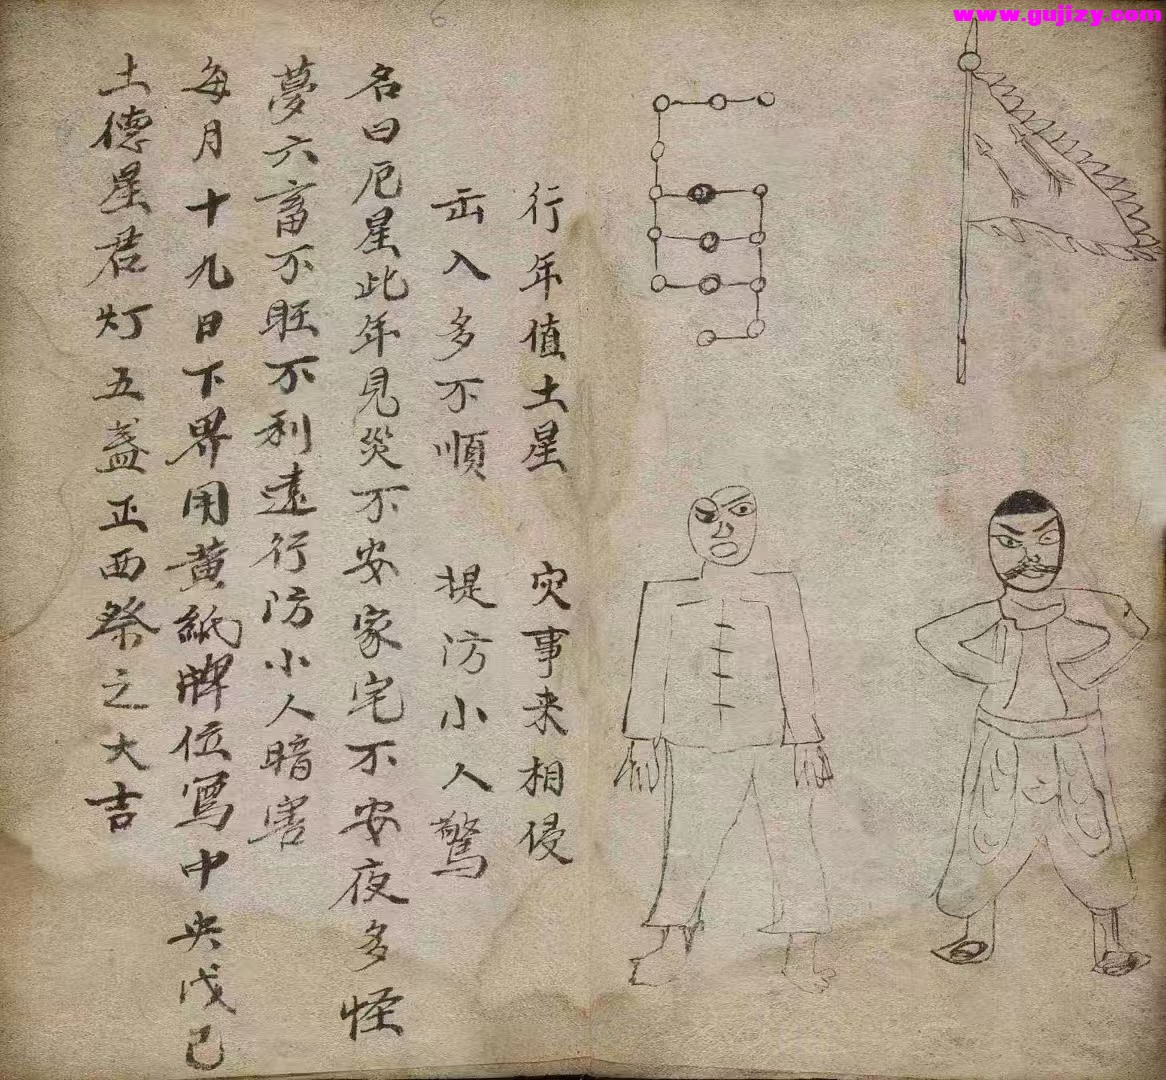 行年值土星 灾事来相侵
出入多不順 提防小人驚
名曰厄星此年見災不安家宅不安夜多怪
夢六畜不旺不利遠行防小人暗害
每月十九日下界用黃紙牌位寫中央戊己
土德星君灯五盏正西祭之大吉
www.gujizy.com
6